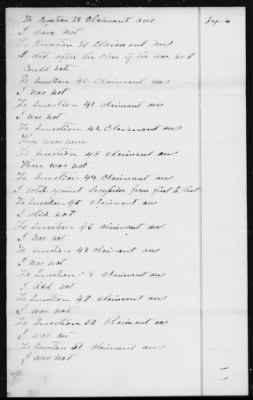 To Question 38 Claimant ans
page 4
I have not
To Question 39 Claimant ans
I did after the close of the war so I
could vote
To Question 40 Claimant ans
I was not
To Question 41 Claimant ans
I was not
To Question 42 Claimant ans
There were none
To Question 43 Claimant ans
There was not
To Question 44 Claimant ans
I voted against Secession from first to last
To Question 45 Claimant ans
I did not
To Question 46 Claimant ans
I was not
To Question 47 Claimant ans
I was not
To Question 48 Claimant ans
I did not
To Question 49 Claimant ans
I was not
To Question 50 Claimant ans
I was not
To Question 51 Claimant ans
I was not